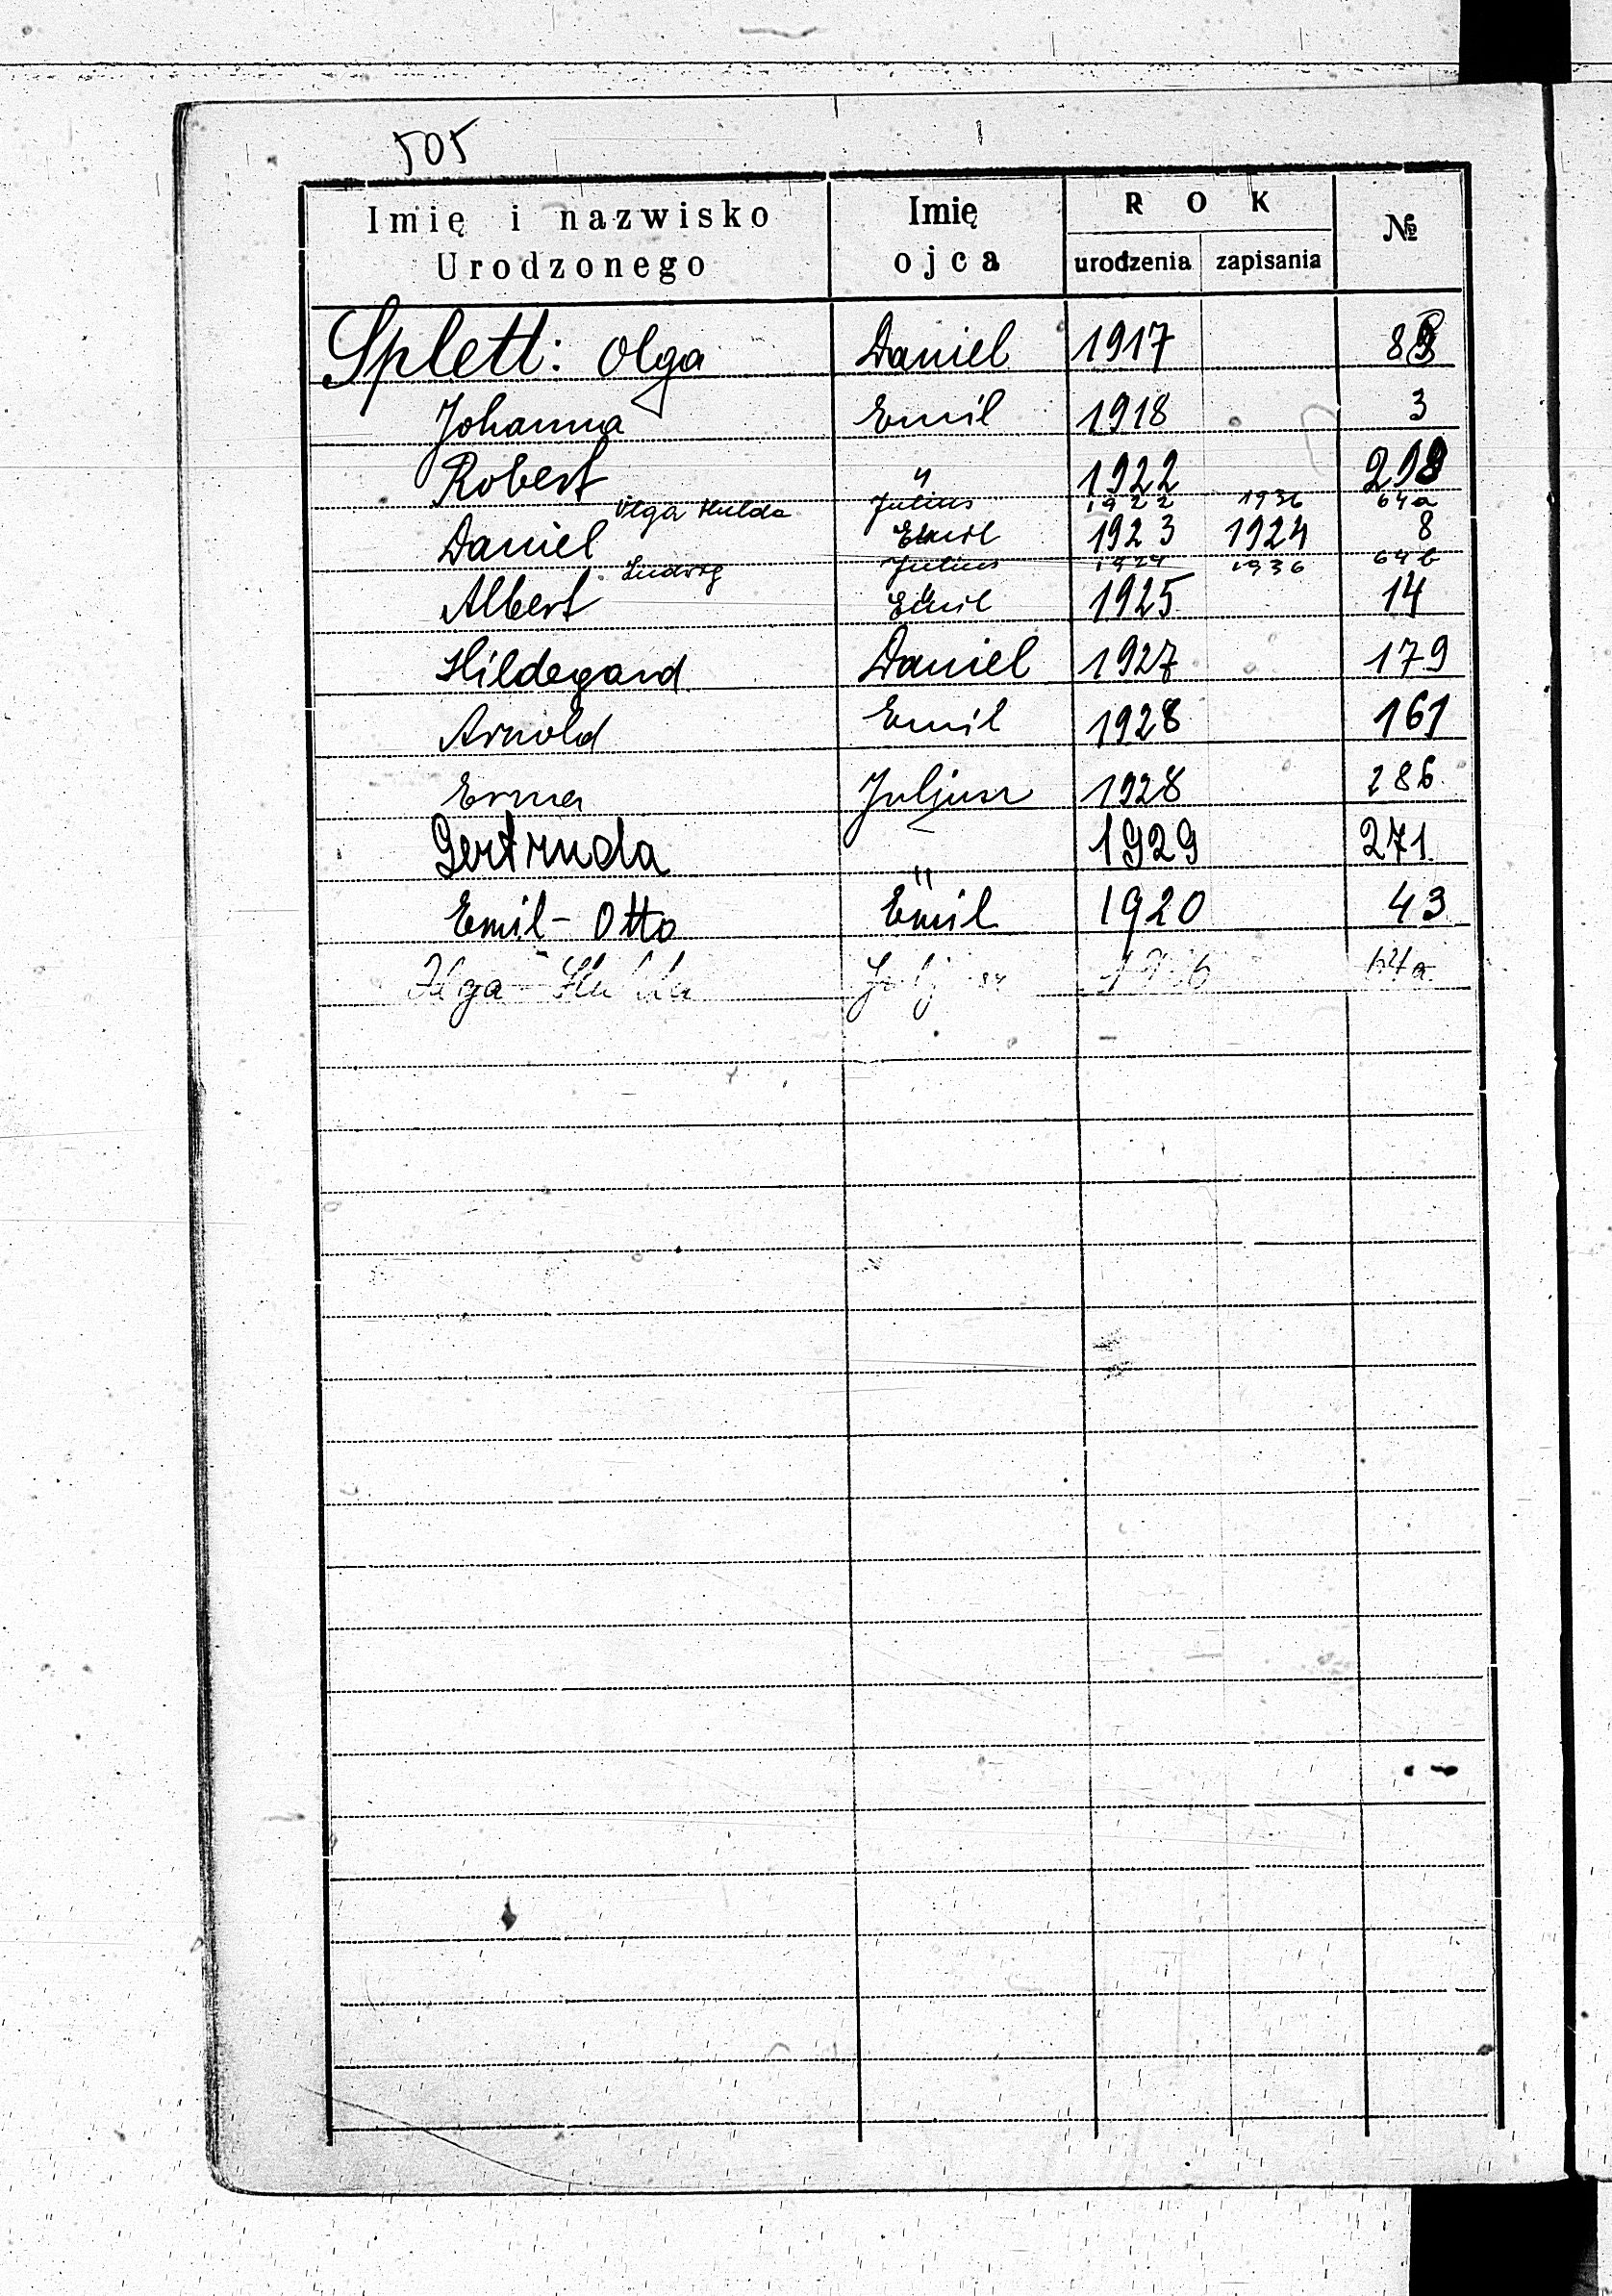 505
Imię i nazwisko Urodzonego Imię ojca ROK urodzenia zapisania №
Splett: Olga Daniel 1917
Johanna Emil 1918 3
Robert " 1922 298
Olga Hulda Julius 1922 1936 64a
Daniel Emil 1923 1924 8
Ludwig Julius 1924 1936 64b
Albert Emil 1925 14
Hildegard Daniel 1927 179
Arnold Emil 1928 161
Erna Juljusz 1928 286
Gertruda " 1929 271
Emil-Otto Emil 1920 43
64a